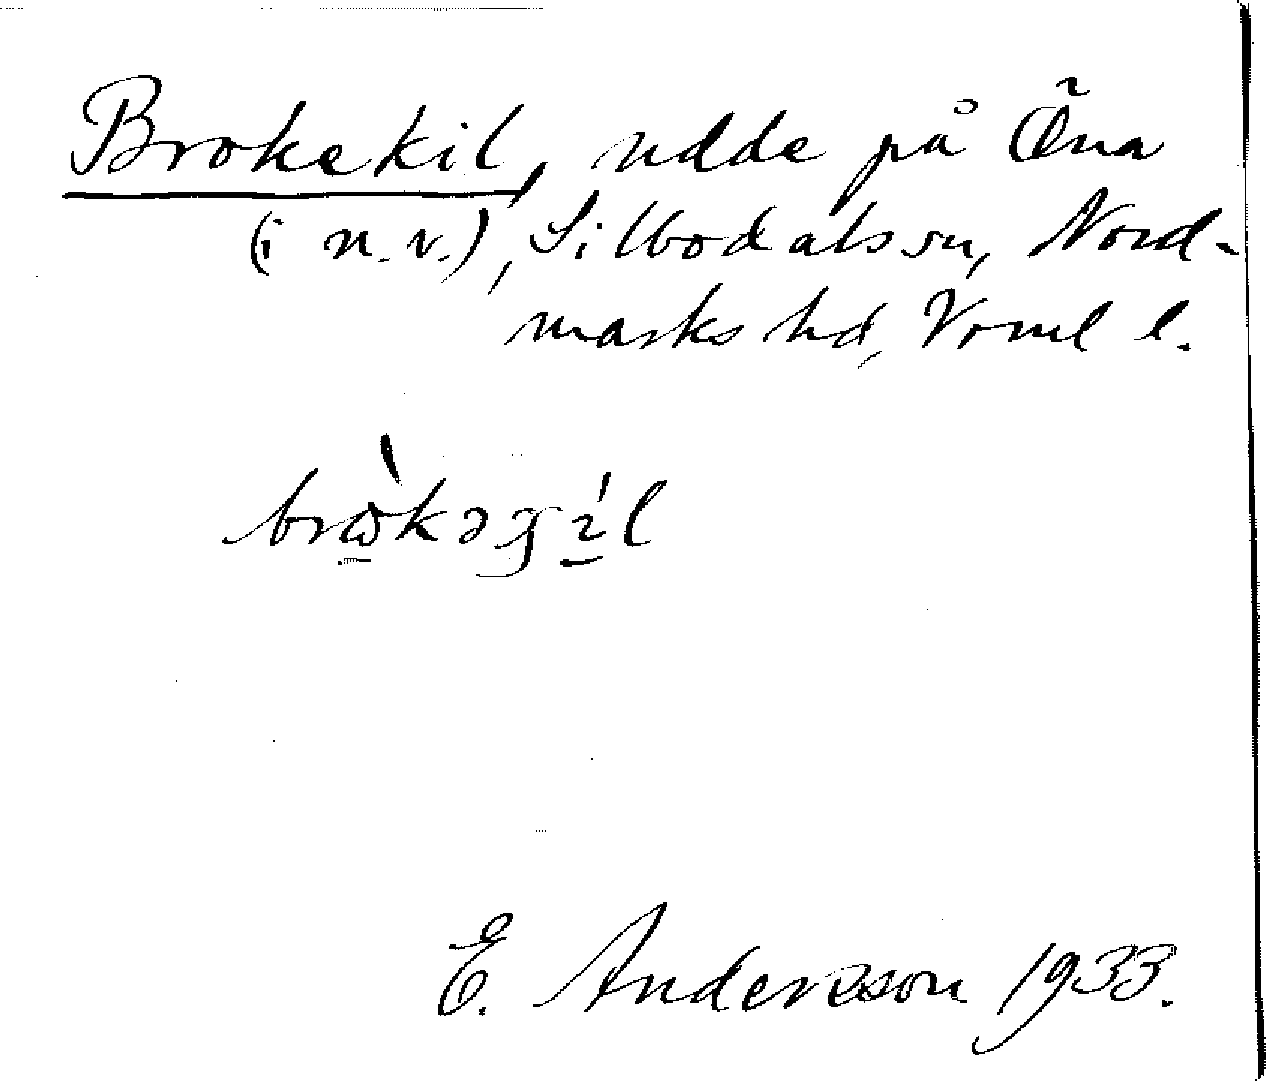 Brokekil, udde på Öna
(i n.v.), Silbodals sn, Nord-
marks hd, Vrml l.
E. Andersson 1933.